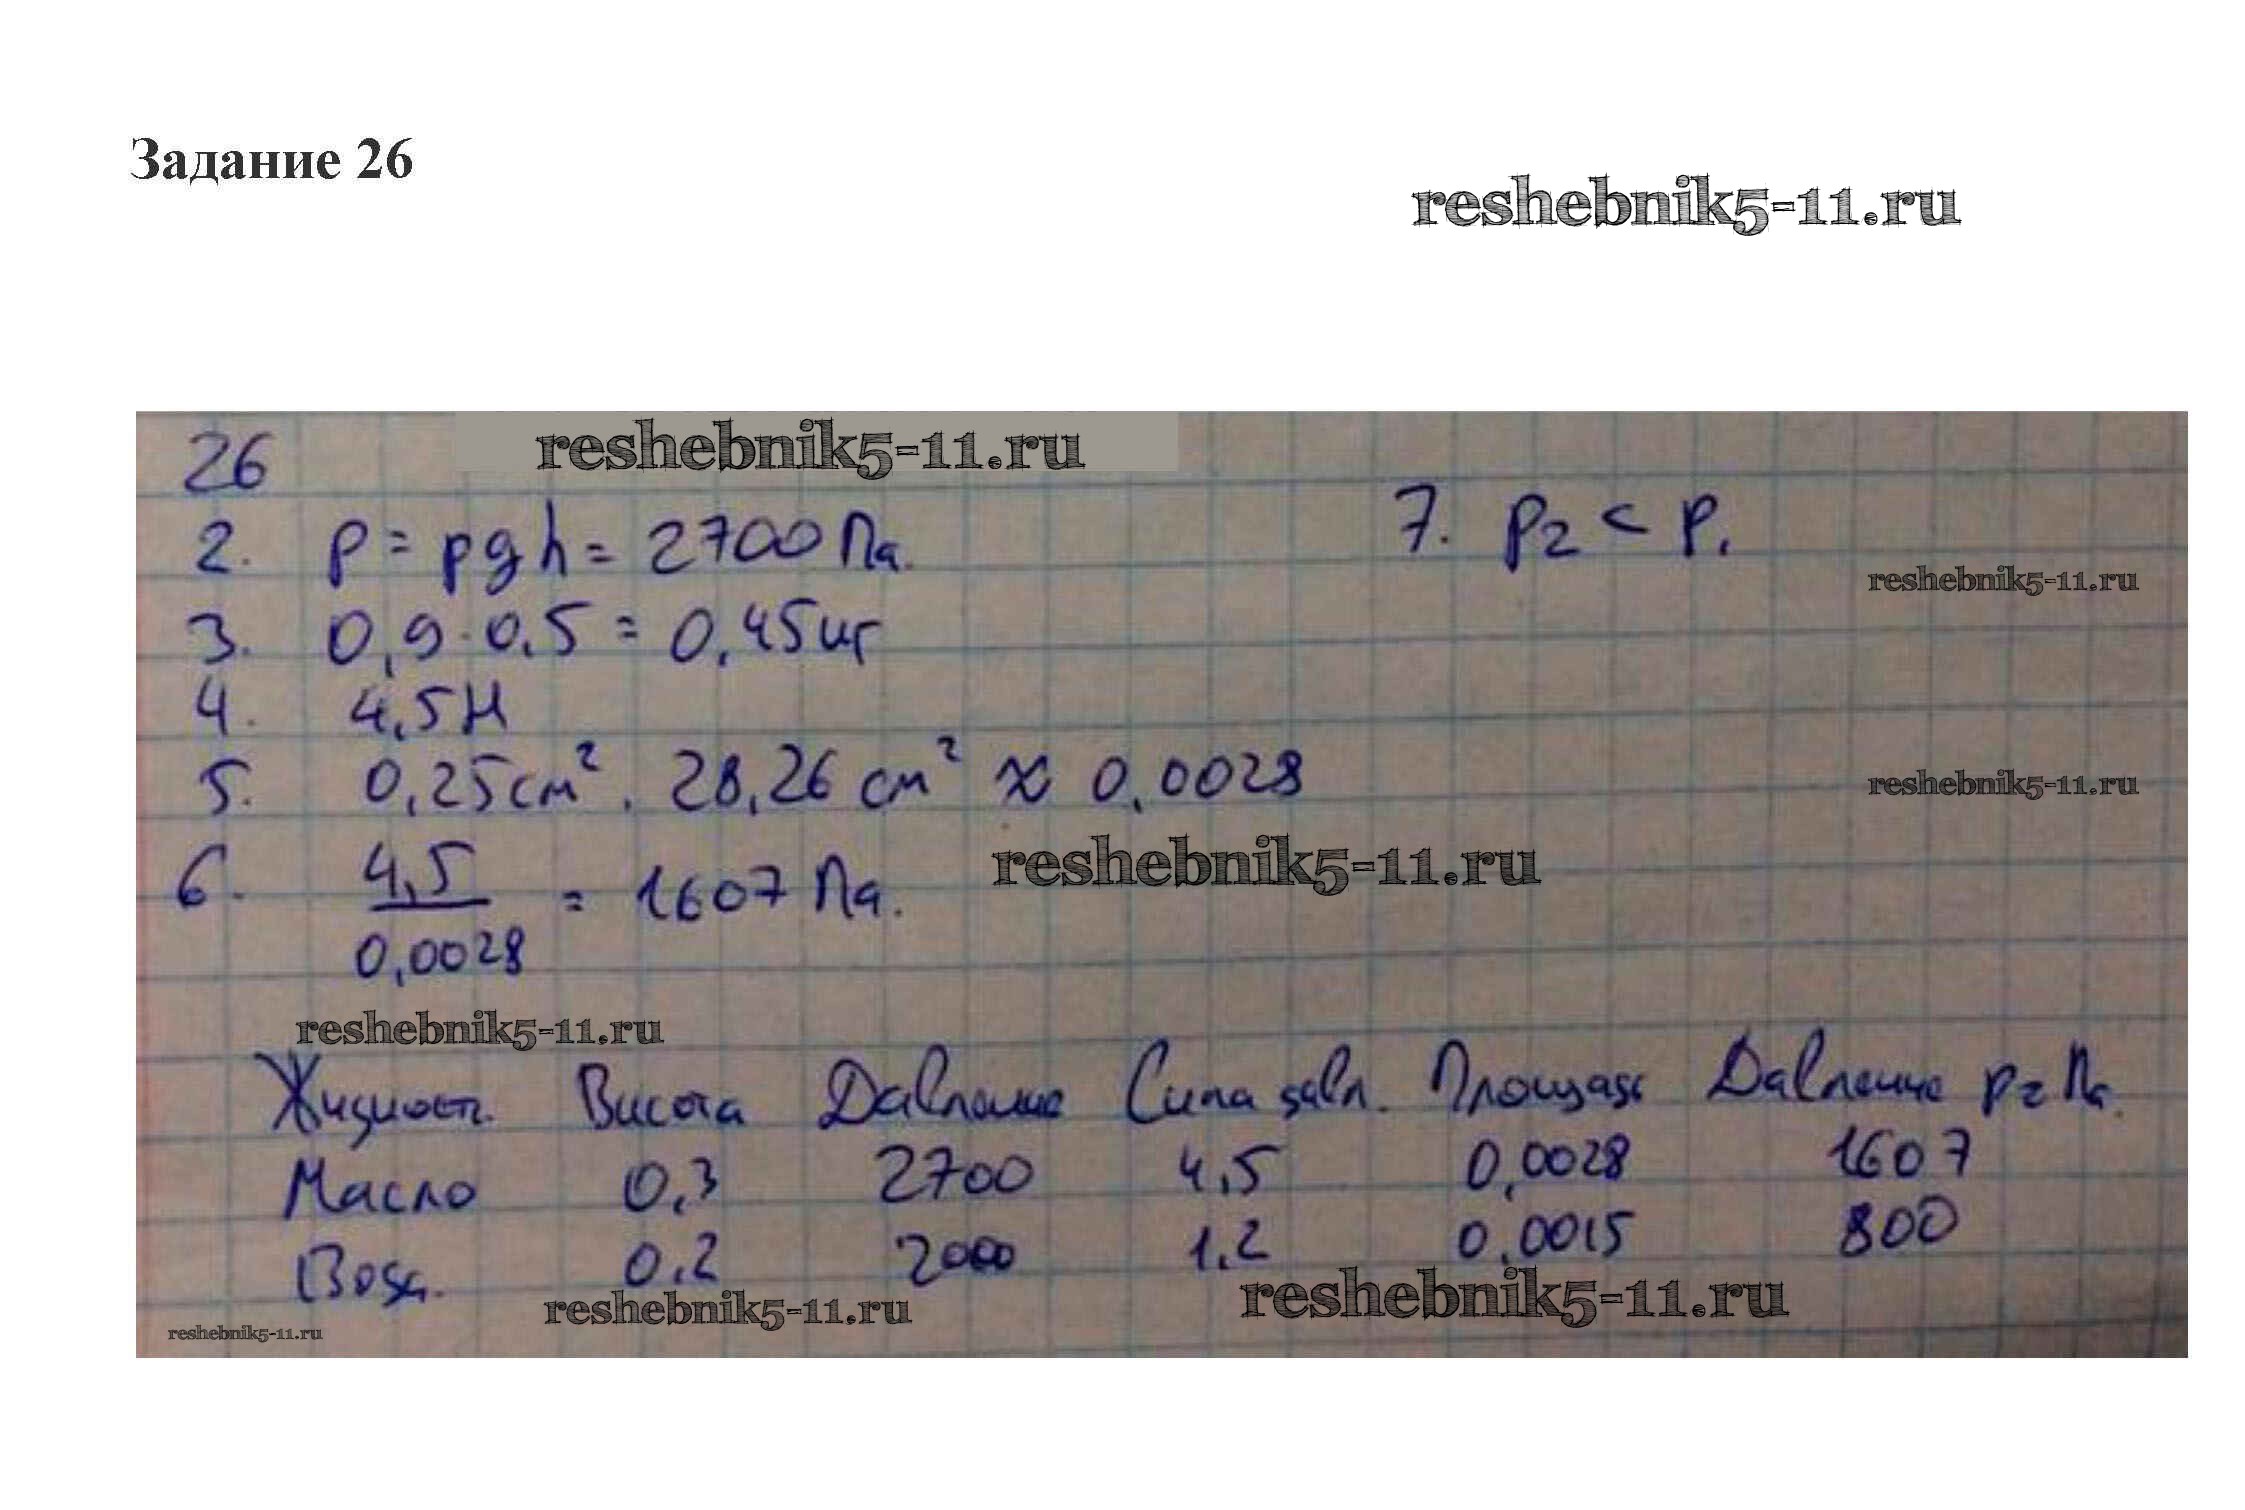 Задание 26
reshebnik5-11.ru
reshebnik5-11.ru
26
2. p = ρgh = 2700 Па.
7. p₂ < p₁
reshebnik5-11.ru
3. 0,9 · 0,5 = 0,45 кг
4. 4,5 Н
5. 0,25 см² · 28,26 см² ≈ 0,0028
reshebnik5-11.ru
6. 4,5 / 0,0028 = 1607 Па.
reshebnik5-11.ru
reshebnik5-11.ru
Жидкост. Висота Давление Сила давл. Площадь Давление p₂ Па.
Масло 0,3 2700 4,5 0,0028 1607
Вода. 0,2 2000 1,2 0,0015 800
reshebnik5-11.ru
reshebnik5-11.ru
reshebnik5-11.ru